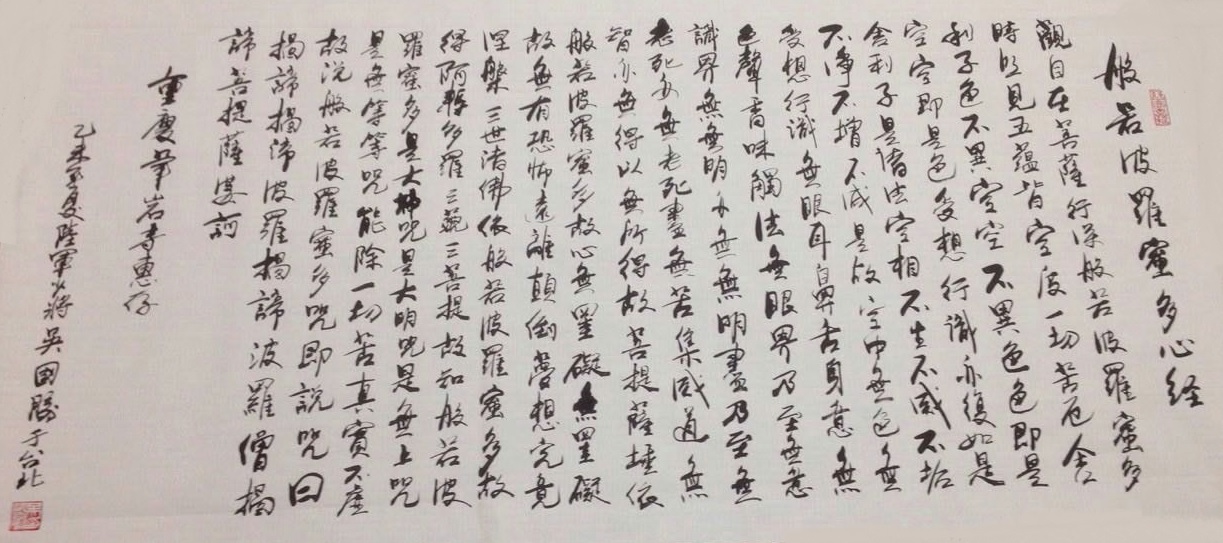 般若波羅蜜多心经
觀自在菩薩行深般若波羅蜜多
時照見五蘊皆空度一切苦厄舍
利子色不異空空不異色色即是
空空即是色受想行識亦復如是
舍利子是諸法空相不生不滅不垢
不淨不增不减是故空中無色無
受想行識無眼耳鼻舌身意無
色聲香味觸法無眼界乃至無意
識界無無明亦無無明盡乃至無
老死亦無老死盡無苦集滅道無
智亦無得以無所得故菩提薩埵依
般若波羅蜜多故心無罣礙無罣礙
故無有恐怖遠離顛倒夢想究竟
涅槃三世諸佛依般若波羅蜜多故
得阿耨多羅三藐三菩提故知般若波
羅蜜多是大神咒是大明咒是無上咒
是無等等咒能除一切苦真實不虛
故说般若波羅蜜多咒即說咒曰
揭諦揭諦波羅揭諦波羅僧揭
諦菩提薩婆訶
重慶華岩寺惠存
乙未夏陸軍少將吳国勝于台北